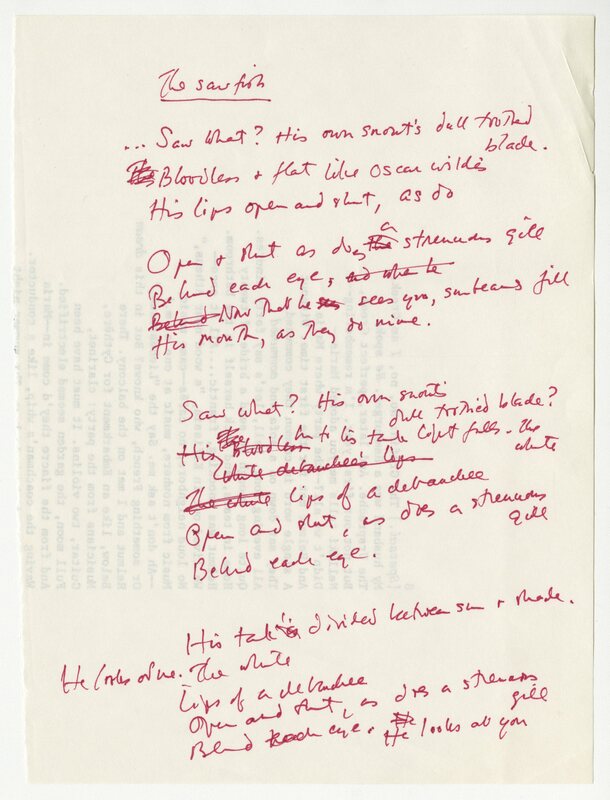 The sawfish
... Saw what? His own snout's dull toothed
blade.
Bloodless & flat like Oscar Wilde's
His lips open and shut, as do
Open & shut as does the a strenuous gill
Behind each eye, and when he
Behind Now that he sees you, sunbeams fill
His mouth, as they do mine.
Saw what? His own snout's
dull toothed blade?
His bloodless in his tank light falls. The
white debauchee's lips white
The white lips of a debauchee
Open and shut, as does a strenuous
gill
Behind each eye.
His tank is divided between sun & shade.
He looks at me. The white
Lips of a debauchee
Open and shut, as does a strenuous
gill
Behind each eye. He He looks at you